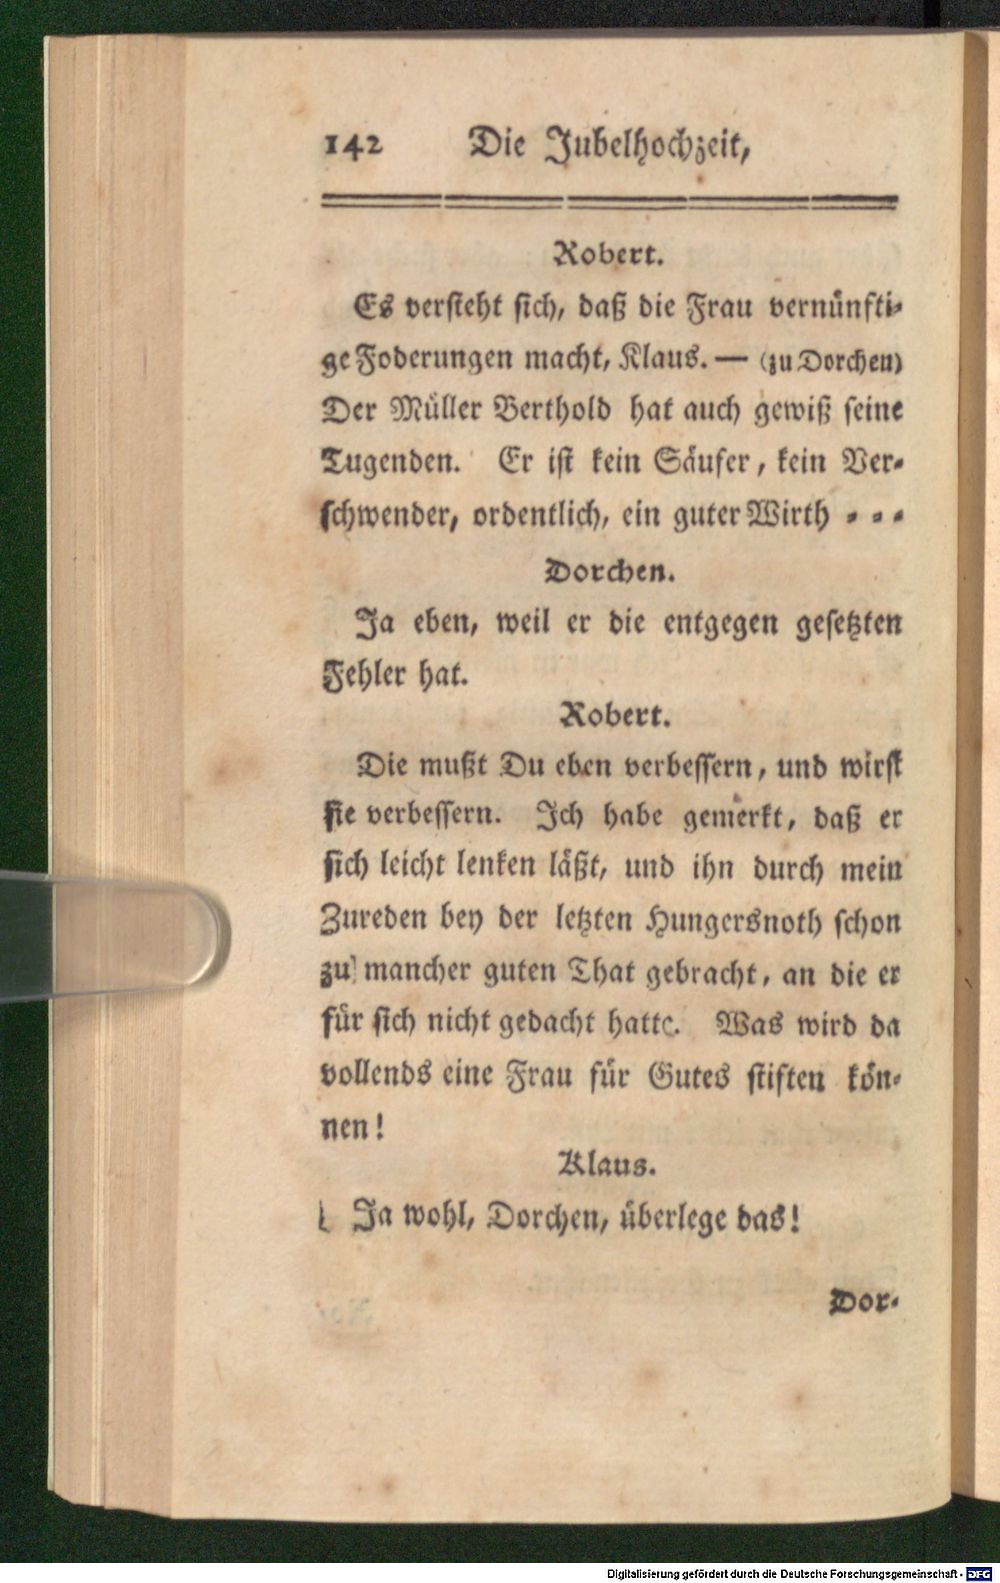 142 Die Jubelhochzeit,
Robert.
Es versteht sich, daß die Frau vernünfti-
ge Foderungen macht, Klaus. — (zu Dorchen)
Der Müller Berthold hat auch gewiß seine
Tugenden. Er ist kein Säufer, kein Ver-
schwender, ordentlich, ein guter Wirth - - -
Dorchen.
Ja eben, weil er die entgegen gesetzten
Fehler hat.
Robert.
Die mußt Du eben verbessern, und wirst
sie verbessern. Ich habe gemerkt, daß er
sich leicht lenken läßt, und ihn durch mein
Zureden bey der letzten Hungersnoth schon
zu mancher guten That gebracht, an die er
für sich nicht gedacht hatte. Was wird da
vollends eine Frau für Gutes stiften kön-
nen!
Klaus.
Ja wohl, Dorchen, überlege das!
Dor-
Digitalisierung gefördert durch die Deutsche Forschungsgemeinschaft - DFG